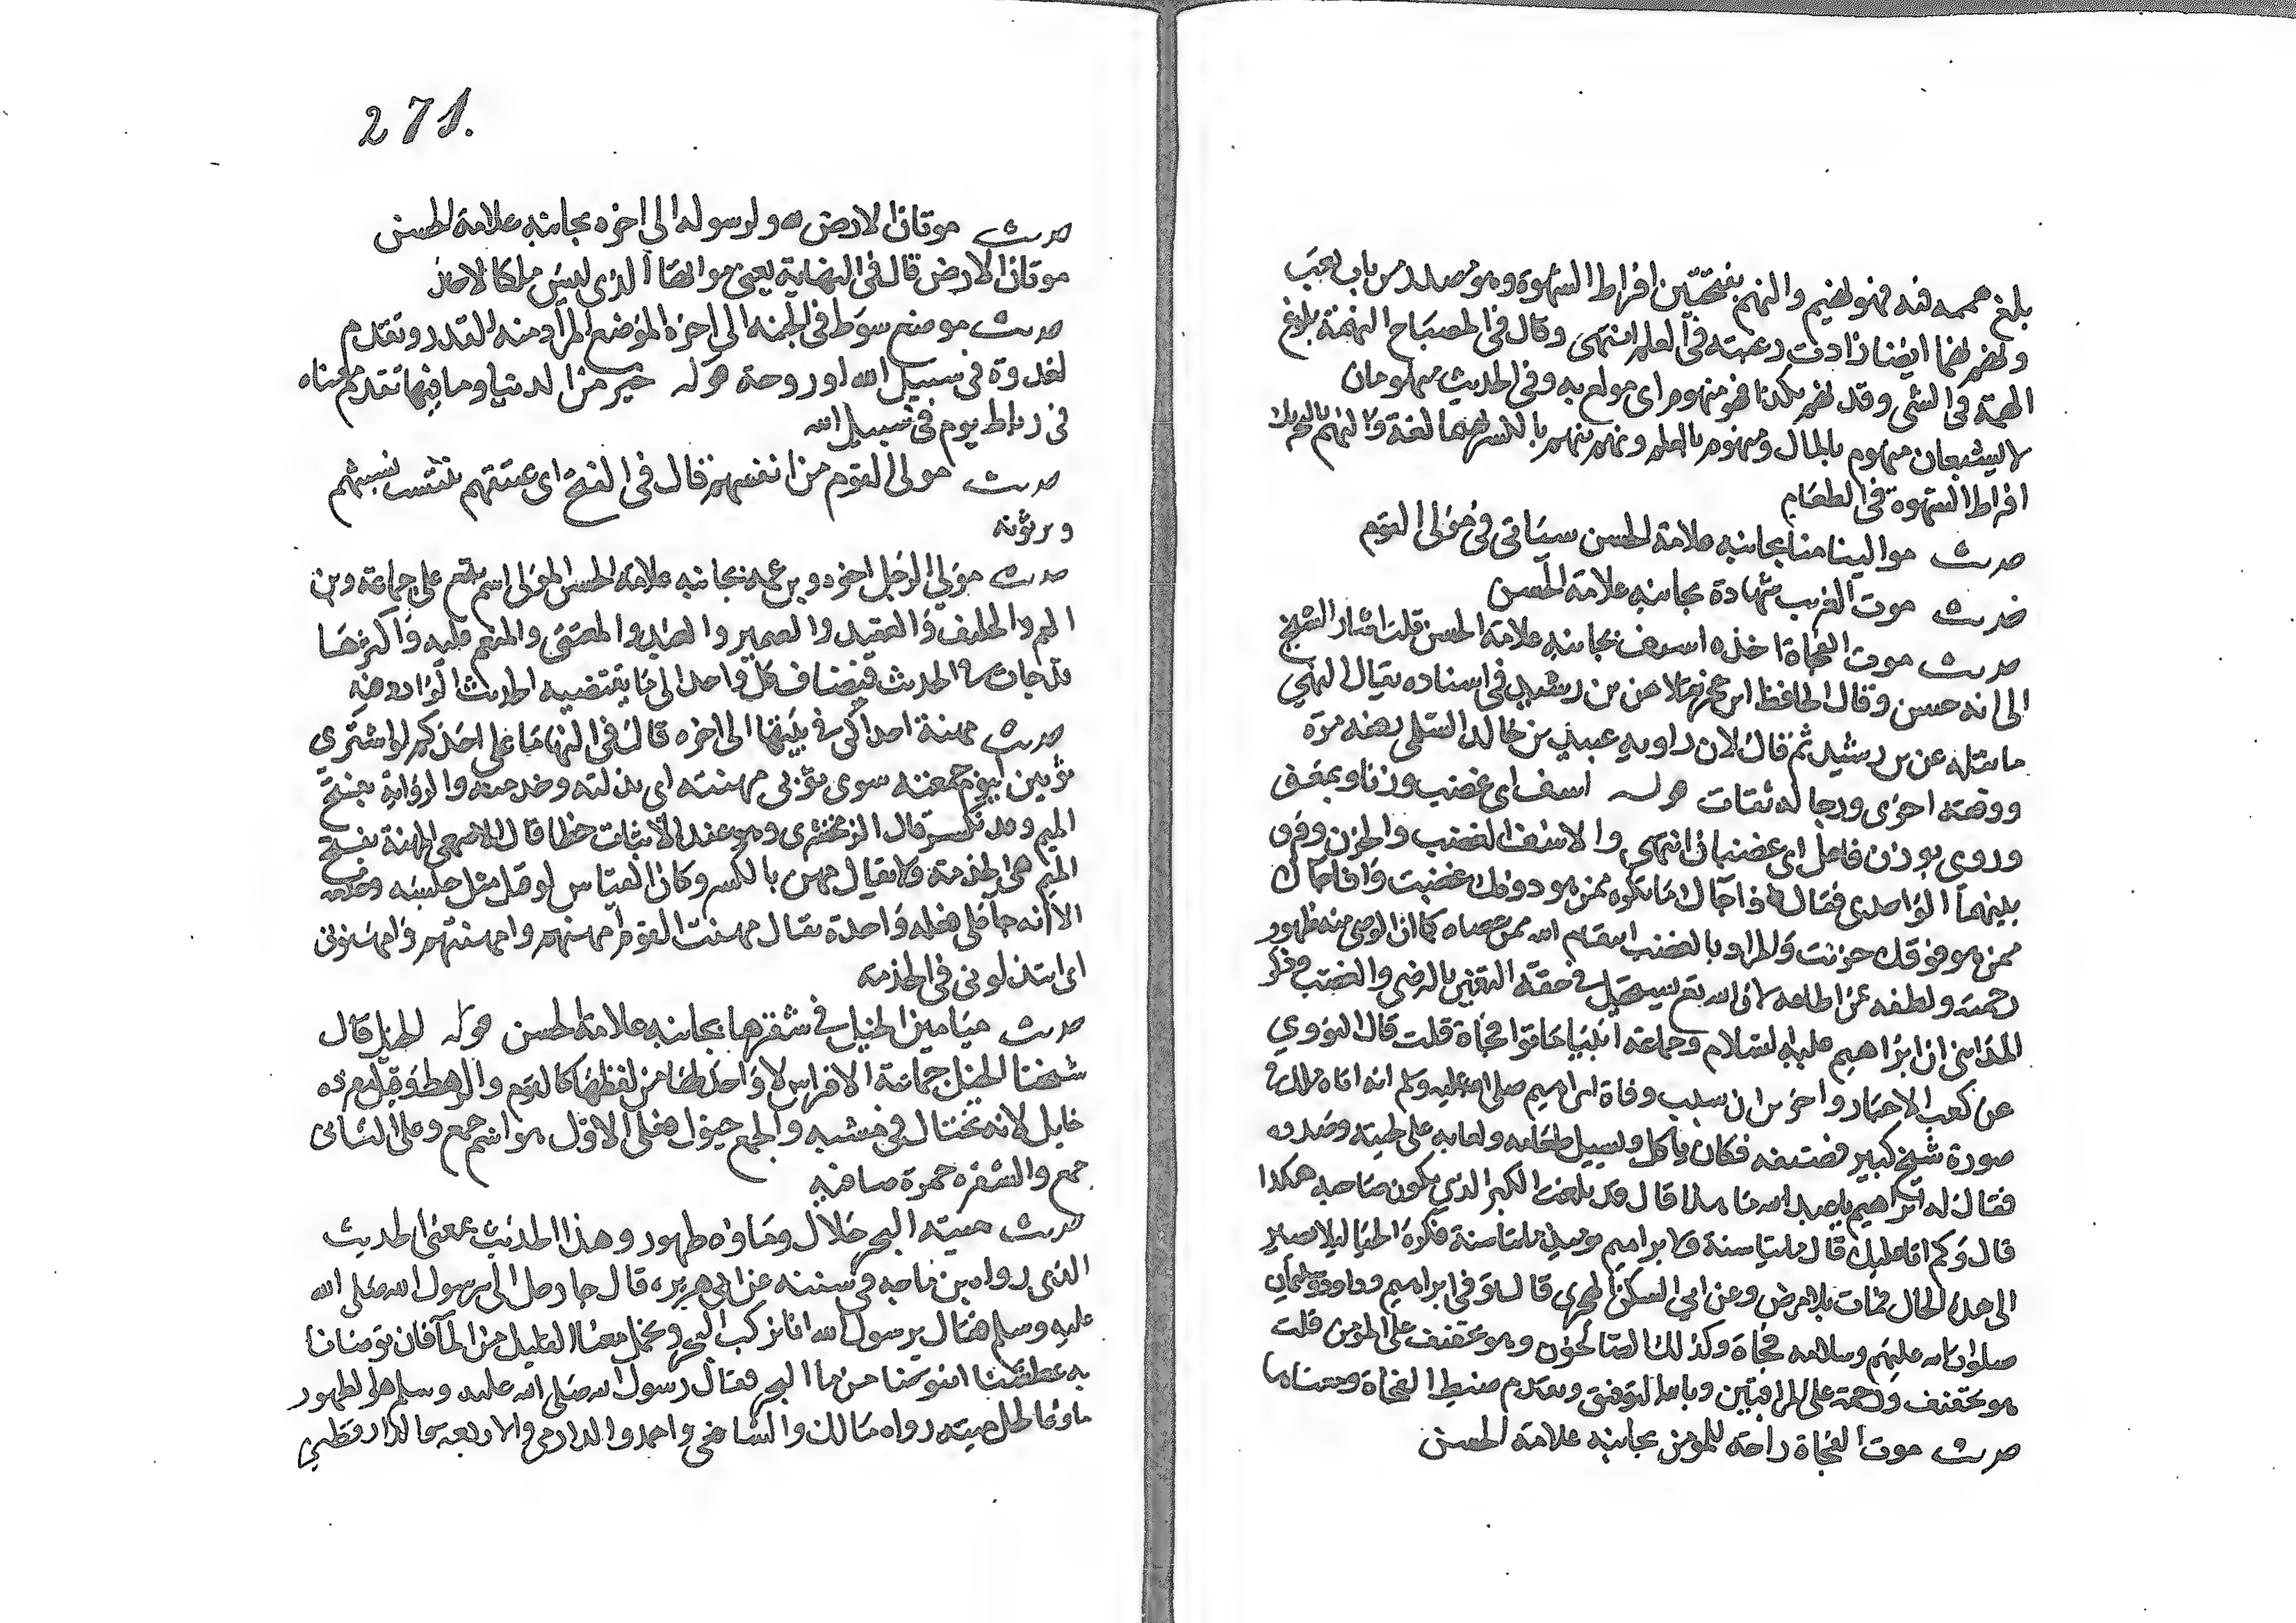 بلغ همه فيه فهو نهيم والنهم بفتحتين افراط الشهوة وهو مصدر من باب تعب
ونهم نهما ايضا زادت رغبته في العلم انتهى وقال في المصباح النهمة بلوغ
الهمة في الشي وقد نهم بكذا فهو منهوم اي مولع به وفي الحديث منهومان
لا يشبعان منهوم بالمال ومنهوم بالعلم ونهم ينهم بالكسر نهما لغة والنهم بالتحريك
افراط الشهوة في الطعام
حديث موالينا منا بجانبه علامة الحسن سياتي في مولى القوم
حديث موت الغريب شهادة بجانبه علامة الحسن
حديث موت الفجاة اخذة اسف بجانبه علامة الحسن قلت اشار الشيخ
الى انه حسن وقال الحافظ ابن حجر بن رشيد في اسناده مقال انتهى
ما نقله عن بن رشيد ثم قال لان راويه عبيد بن خالد السلمي رفعه مرة
ووقفه اخرى ورجاله ثقات قوله اسف اي غضب وزنا ومعنى
وروي بوزن فاعل اي غضبان انتهى والاسف الغضب والحزن وفرق
بينهما الواحدي فقال اذا جاك ما تكره ممن هو دونك غضبت واذا جاك
ممن هو فوقك حزنت والمراد بالغضب انتقام الله ممن عصاه كما ان الرضى منه ظهور
رحمته ولطفه بمن اطاعه لان الله تع يستحيل في حقه التغير بالرضى والغضب وذكر
المدايني ان ابراهيم عليه السلام وجماعة انبيا ماتوا فجاة قلت قال النووي
عن كعب الاحبار واخرين ان سبب وفاة ابراهيم صلى الله عليه وسلم انه اتاه ملك في
صورة شيخ كبير فضيفه فكان ياكل ويسيل طعامه ولعابه على لحيته وصدره
فقال له ابراهيم يا عبد الله ما هذا قال قد بلغت الكبر الذي يكون صاحبه هكذا
قال وكم اتى عليك قال مايتا سنة ولابراهيم يوميذ مايتا سنة فكره الحياة ليلا يصير
الى هذه الحال فمات بلا مرض وعن ابي السكن الهجري قال توفي ابراهيم وداود وسليمان
صلوات الله عليهم وسلامه فجاة وكذلك الصالحون وهو تخفيف على المومن قلت
هو تخفيف ورحمة على المراقبين وبالله التوفيق وتقدم ضبط الفجاة ومعناها
حديث موت الفجاة راحة للمومن بجانبه علامة الحسن
271.
حديث موتان الارض لله ولرسوله الى اخره بجانبه علامة الحسن
موتان الارض قال في النهاية يعني مواتها الذي ليس ملكا لاحد
حديث موضع سوط في الجنة الى اخره الموضع المراد منه القدر وتقدم
لغدوة في سبيل الله او روحة قوله خير من الدنيا وما فيها تقدم معناه
في رباط يوم في سبيل الله
حديث مولى القوم من انفسهم قال في الفتح اي عتيقهم ينتسب نسبتهم
ويرثونه
حديث مولى الرجل اخوه وبن عمه بجانبه علامة الحسن المولى اسم يقع على جماعة وبن
العم والحليف والعقيد والصهر والعبد والمعتق والمنعم عليه واكثرها
قد جات في الحديث فيضاف كل واحد الى ما يقتضيه الحديث الوارد فيه
حديث مهنة احداكن في بيتها الى اخره قال في النهاية ما على احدكم لو اشترى
ثوبين ليوم جمعته سوى ثوبي مهنته اي بذلته وخدمته والرواية بفتح
الميم وقد تكسر قال الزمخشري وهو عند الاثبات خطا قال الاصمعي المهنة بفتح
الميم هي الخدمة ولا يقال مهنة بالكسر وكان القياس لو قيل مثل جلسة وخدمة
الا انه جا على فعلة واحدة يقال مهنت القوم امهنهم وامهنتهم وامهنوني
اي ابتذلوني في الخدمة
حديث ميامين الخيل في شقرها بجانبه علامة الحسن قوله الخيل قال
شيخنا الخيل جماعة الافراس لا واحد لها من لفظها كالقوم والرهط وقيل مفرده
خايل لانه يختال في مشيه والجمع خيول فعلى الاول هو اسم جمع وعلى الثاني
جمع والشقرة حمرة صافية
حديث ميتة البحر حلال وماوه طهور وهذا الحديث بمعنى الحديث
الذي رواه بن ماجه في سننه عن ابي هريرة قال جا رجل الى رسول الله صلى الله
عليه وسلم فقال يرسول الله انا نركب البحر ونحمل معنا القليل من الما فان توضانا
به عطشنا افنتوضا من ما البحر فقال رسول الله صلى الله عليه وسلم هو الطهور
ماوه الحل ميتته رواه مالك والشافعي واحمد والدارمي والاربعة والدارقطني